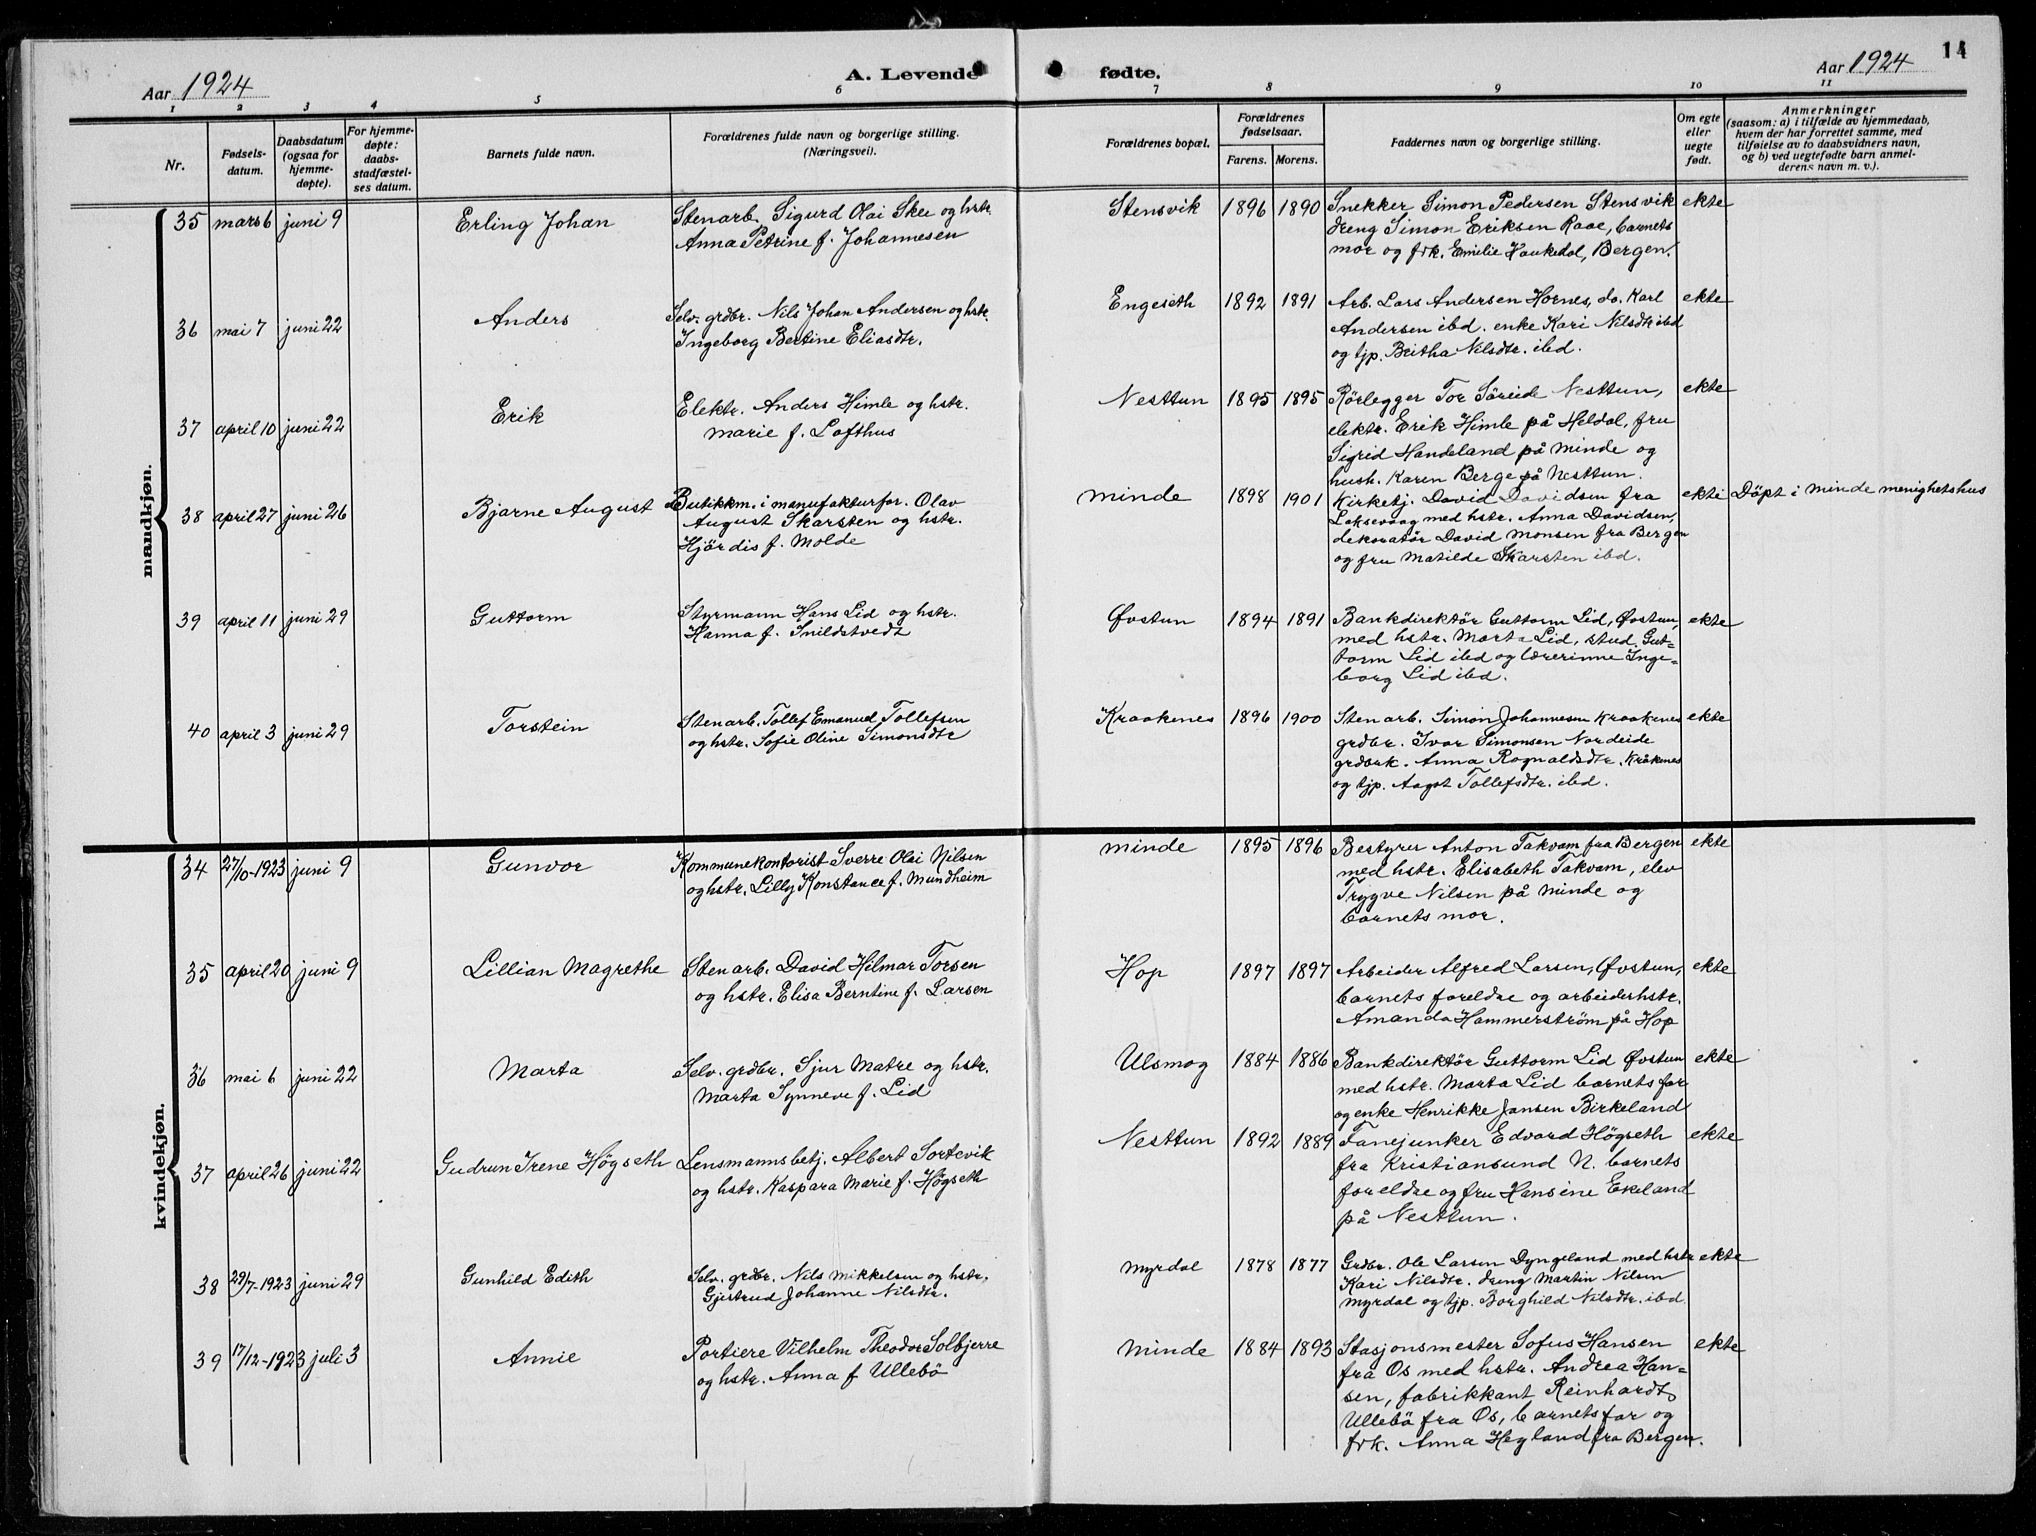 14
Aar 1924
A. Levende
fødte.
Aar 1924
1 2 3 4 5 6 7 8 9 10 11
Nr.
Fødsels-
datum.
Daabsdatum
(ogsaa for
hjemme-
døpte).
For hjemme-
døpte:
daabs-
stadfæstel-
ses datum.
Barnets fulde navn.
Forældrenes fulde navn og borgerlige stilling.
(Næringsvei).
Forældrenes bopæl.
Forældrenes
fødselsaar.
Farens. Morens.
Faddernes navn og borgerlige stilling.
Om egte
eller
uegte
født.
Anmerkninger
(saasom: a) i tilfælde av hjemmedaab,
hvem der har forrettet samme, med
tilføielse av to daabsvidners navn,
og b) ved uegtefødte barn anmel-
derens navn m. v.).
mandkjøn.
35 mars 6 juni 9 Erling Johan
Stenarb. Sigurd Olai Skee og hstr.
Anna Petrine f. Johannesen
Stensvik 1896 1890
Snekker Simon Pedersen Stensvik
dreng Simon Eriksen Raae, barnets
mor og frk. Emilie Haukedal, Bergen.
ekte
36 mai 7 juni 22 Anders
Selv. grdbr. Nils Johan Andersen og hstr.
Ingeborg Bertine Eliasdtr.
Engeseth 1892 1891
Arb. Lars Andersen Hornes, do. Karl
Andersen ibd. enke Kari Nilsdtr ibd
og tjp. Britha Nilsdtr. ibd.
ekte
37 april 10 juni 22 Erik
Elektr. Anders Himle og hstr.
Marie f. Lofthus
Nesttun 1895 1895
Rörlegger Tor Söreide Nesttun,
elektr. Erik Himle på Heldal, fru
Sigrid Handeland på Minde og
hush. Karen Berge på Nesttun.
ekte
38 april 27 juni 26 Bjarne August
Butikkm. i manufakturfor. Olav
August Skarsten og hstr.
Hjördis f. Molde
Minde 1898 1901
Kirketj. David Davidsen fra
Laksevaag med hstr. Anna Davidsen,
dekoratör David Monsen fra Bergen
og fru Matilde Skarsten ibd.
ekte Döpt i Minde menighetshus
39 april 11 juni 29 Guttorm
Styrmann Hans Lid og hstr.
Hanna f. Smildstvedt
Øvstun 1894 1891
Bankdirektör Guttorm Lid, Øvstun,
med hstr. Marta Lid, stud. Gut=
torm Lid ibd og lærerinne Inge=
borg Lid ibd.
ekte
40 april 3 juni 29 Torstein
Stenarb. Tollef Emanuel Tollefsen
og hstr. Sofie Oline Simonsdtr
Kraakenes 1896 1900
Stenarb. Simon Johannesen Kraakenes
grdbr. Ivar Simonsen Nordeide
grdbrk. Anna Ragnaldsdtr. Kråkenes
og tjp. Aagot Tollefsdtr. ibd.
ekte
kvindekjøn.
34 27/10-1923 juni 9 Gunvor
Kommunekontorist Sverre Olai Nilsen
og hstr. Lilly Konstance f. Mundheim
Minde 1895 1896
Bestyrer Anton Takvam fra Bergen
med hstr. Elisabeth Takvam, elev
Trygve Nilsen på Minde og
barnets mor.
ekte
35 april 20 juni 9 Lillian Magrethe
Stenarb. David Hilmar Torsen
og hstr. Elisa Berntine f. Larsen
Hop 1897 1897
Arbeider Alfred Larsen, Øvstun,
barnets foreldre og arbeiderhstr.
Amanda Hammerström på Hop
ekte
36 mai 6 juni 22 Marta
Selv. grdbr. Sjur Matre og hstr.
Marta Synneve f. Lid
Ulsmog 1884 1886
Bankdirektör Guttorm Lid Øvstun
med hstr. Marta Lid barnets far
og enke Henrikke Jansen Birkeland
ekte
37 april 26 juni 22 Gudrun Irene Högseth
Lensmannsbetj. Albert Sortevik
og hstr. Kaspara Marie f. Högseth
Nesttun 1892 1889
Fanejunker Edvard Högseth
fra Kristiansund N. barnets
foreldre og fru Hansine Ekeland
på Nesttun.
ekte
38 29/7-1923 juni 29 Gunhild Edith
Selv. grdbr. Nils Mikkelsen og hstr.
Gjertrud Johanne Nilsdtr.
Myrdal 1878 1877
Grdbr. Ole Larsen Dyngeland med hstr
Kari Nilsdtr. dreng Martin Nilsen
Myrdal og tjp. Borghild Nilsdtr. ibd.
ekte
39 17/12-1923 juli 3 Annie
Portiere Vilhelm Theodor Solbjerre
og hstr. Anna f Ullebö
Minde 1884 1893
Stasjonsmester Sofus Hansen
fra Os med hstr. Andrea Han=
sen, fabrikkant Reinhardt
Ullebö fra Os, barnets far og
frk. Anna Hegland fra Bergen.
ekte